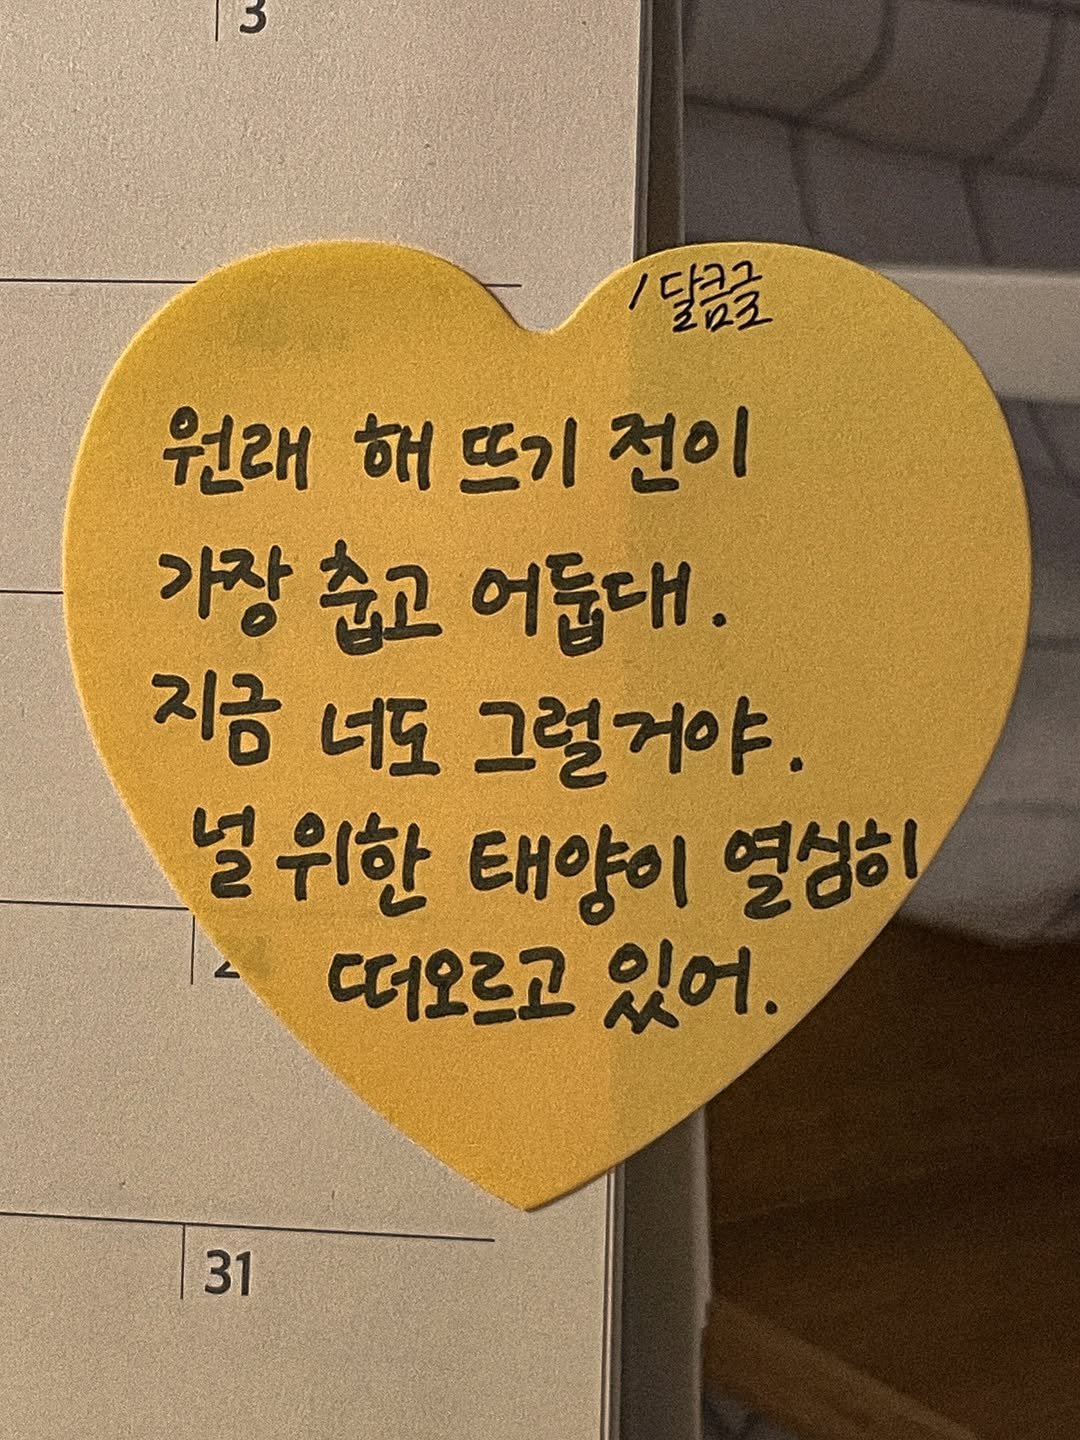 3
/달콤글
원래 해 뜨기 전이
가장 춥고 어둡대.
지금 너도 그럴거야.
널 위한 태양이 열심히
떠오르고 있어.
31